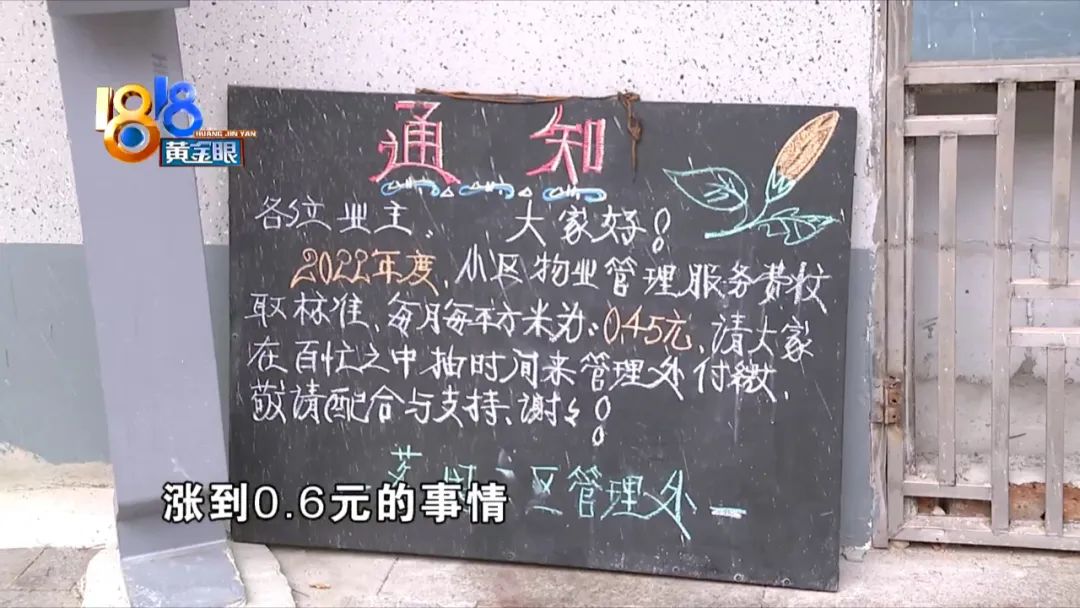 1818
HUANG JIN YAN
黄金眼
通知
各位业主、大家好！
2022年度，小区物业管理服务费收
取标准、每月每平方米为：0.45元，请大家
在百忙之中抽时间来管理处付缴，
敬请配合与支持、谢々！
区管理处
涨到0.6元的事情